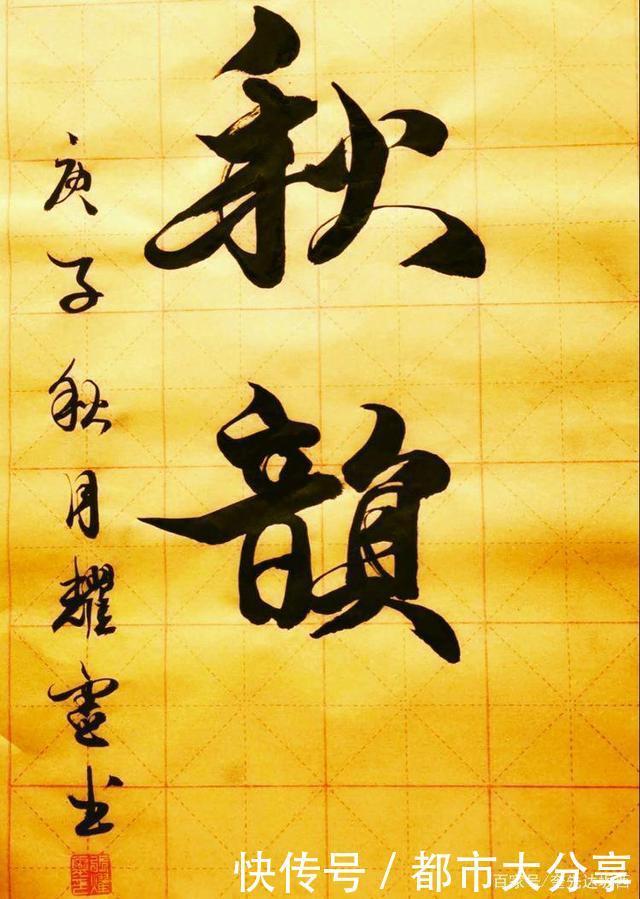 秋韻
庚子秋月耀靈书
快传号 / 都市大分享